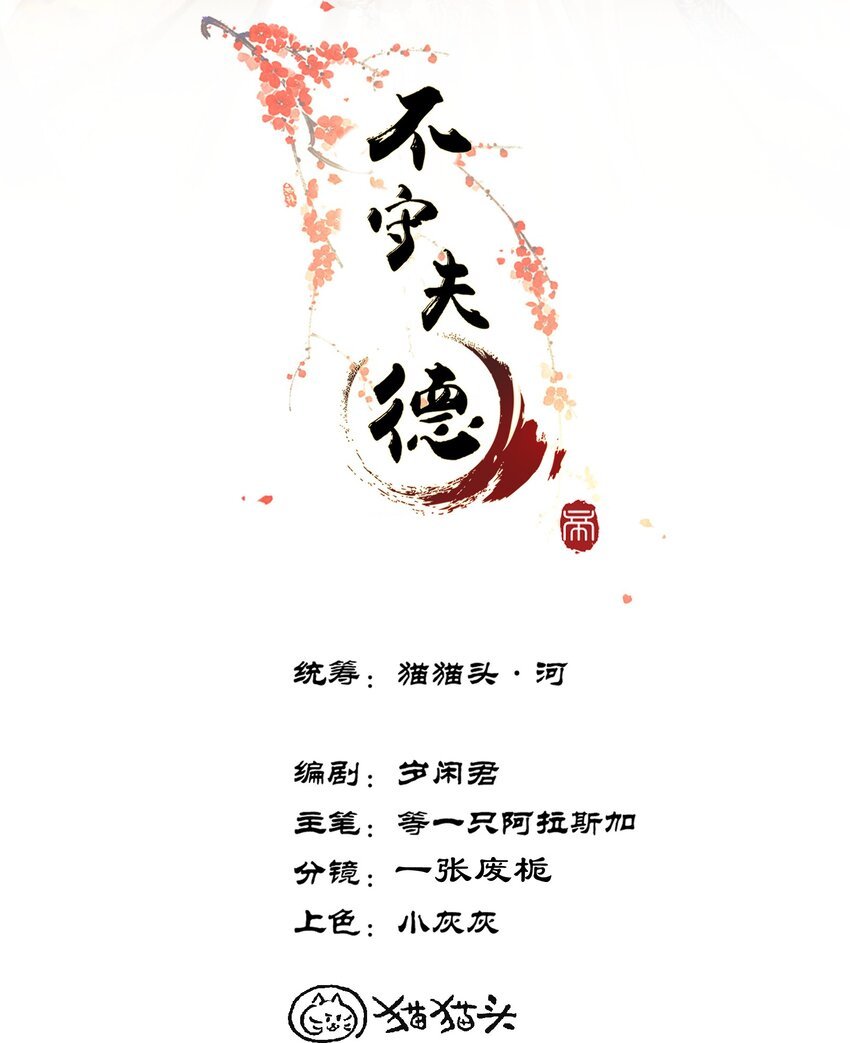 不守夫德
统筹：猫猫头·河
编剧：岁闲君
主笔：等一只阿拉斯加
分镜：一张废栀
上色：小灰灰
猫猫头